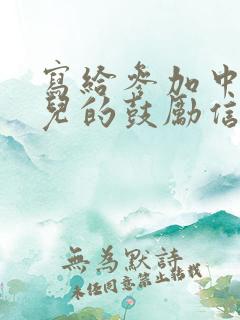 寫給參加中
兒的鼓勵信
無為默詩
未經同意禁止轉載